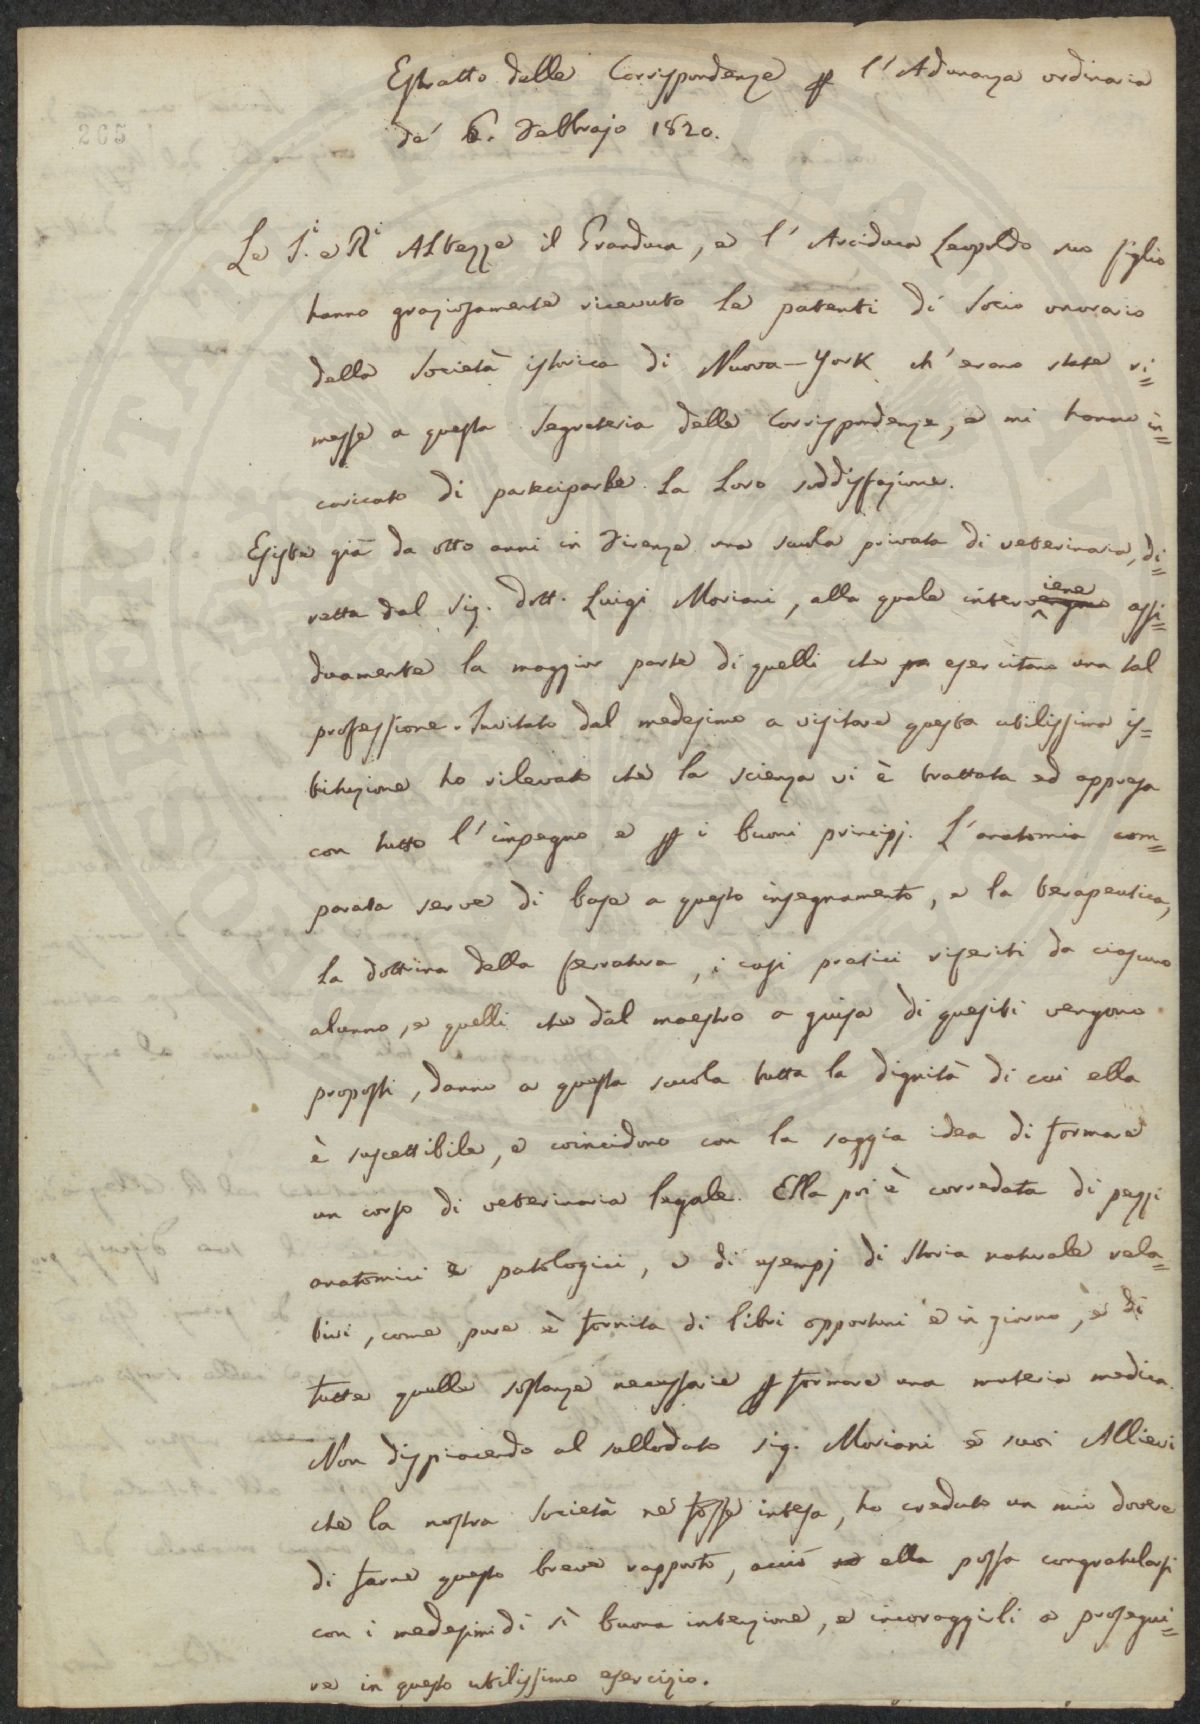 Estratto delle Corrispondenze p l'Adunanza ordinaria
de' 6. Febbrajo 1820.
265
Le I.i e R.i Altezze il Granduca, e l'Arciduca Leopoldo suo figlio
hanno graziosamente ricevuto le patenti di Socio onorario
della Società istorica di Nuova-York ch'erano state ri=
messe a questa Segreteria delle Corrispondenze, e mi hanno in=
caricato di parteciparle la Loro soddisfazione.
Esiste già da otto anni in Firenze una scuola privata di veterinaria, di=
retta dal Sig. Dott. Luigi Moriani, alla quale interviene assi=
duamente la maggior parte di quelli che esercitano una tal
professione. Invitato dal medesimo a visitare questa utilissima is=
tituzione ho rilevato che la scienza vi è trattata ed appresa
con tutto l'impegno e p i buoni principj. L'anatomia com=
parata serve di base a questo insegnamento, e la terapeutica,
la dottrina della ferratura, i casi pratici riferiti da ciascuno
alunno, e quelli che dal maestro a guisa di quesiti vengono
proposti, danno a questa scuola tutta la dignità di cui ella
è suscettibile, e coincidono con la saggia idea di formare
un corso di veterinaria legale. Ella poi è corredata di pezzi
anatomici e patologici, e di esempj di storia naturale rela=
tivi, come pure è fornita di libri opportuni e in giorno, e di
tutte quelle sostanze necessarie p formare una materia medica.
Non dispiacendo al sullodato sig. Moriani e suoi Allievi
che la nostra Società ne fosse intesa, ho creduto un mio dovere
di farne questo breve rapporto, acciò ella possa congratularsi
con i medesimi di sì buona intenzione, e incoraggirli a prosegui=
re in questo utilissimo esercizio.